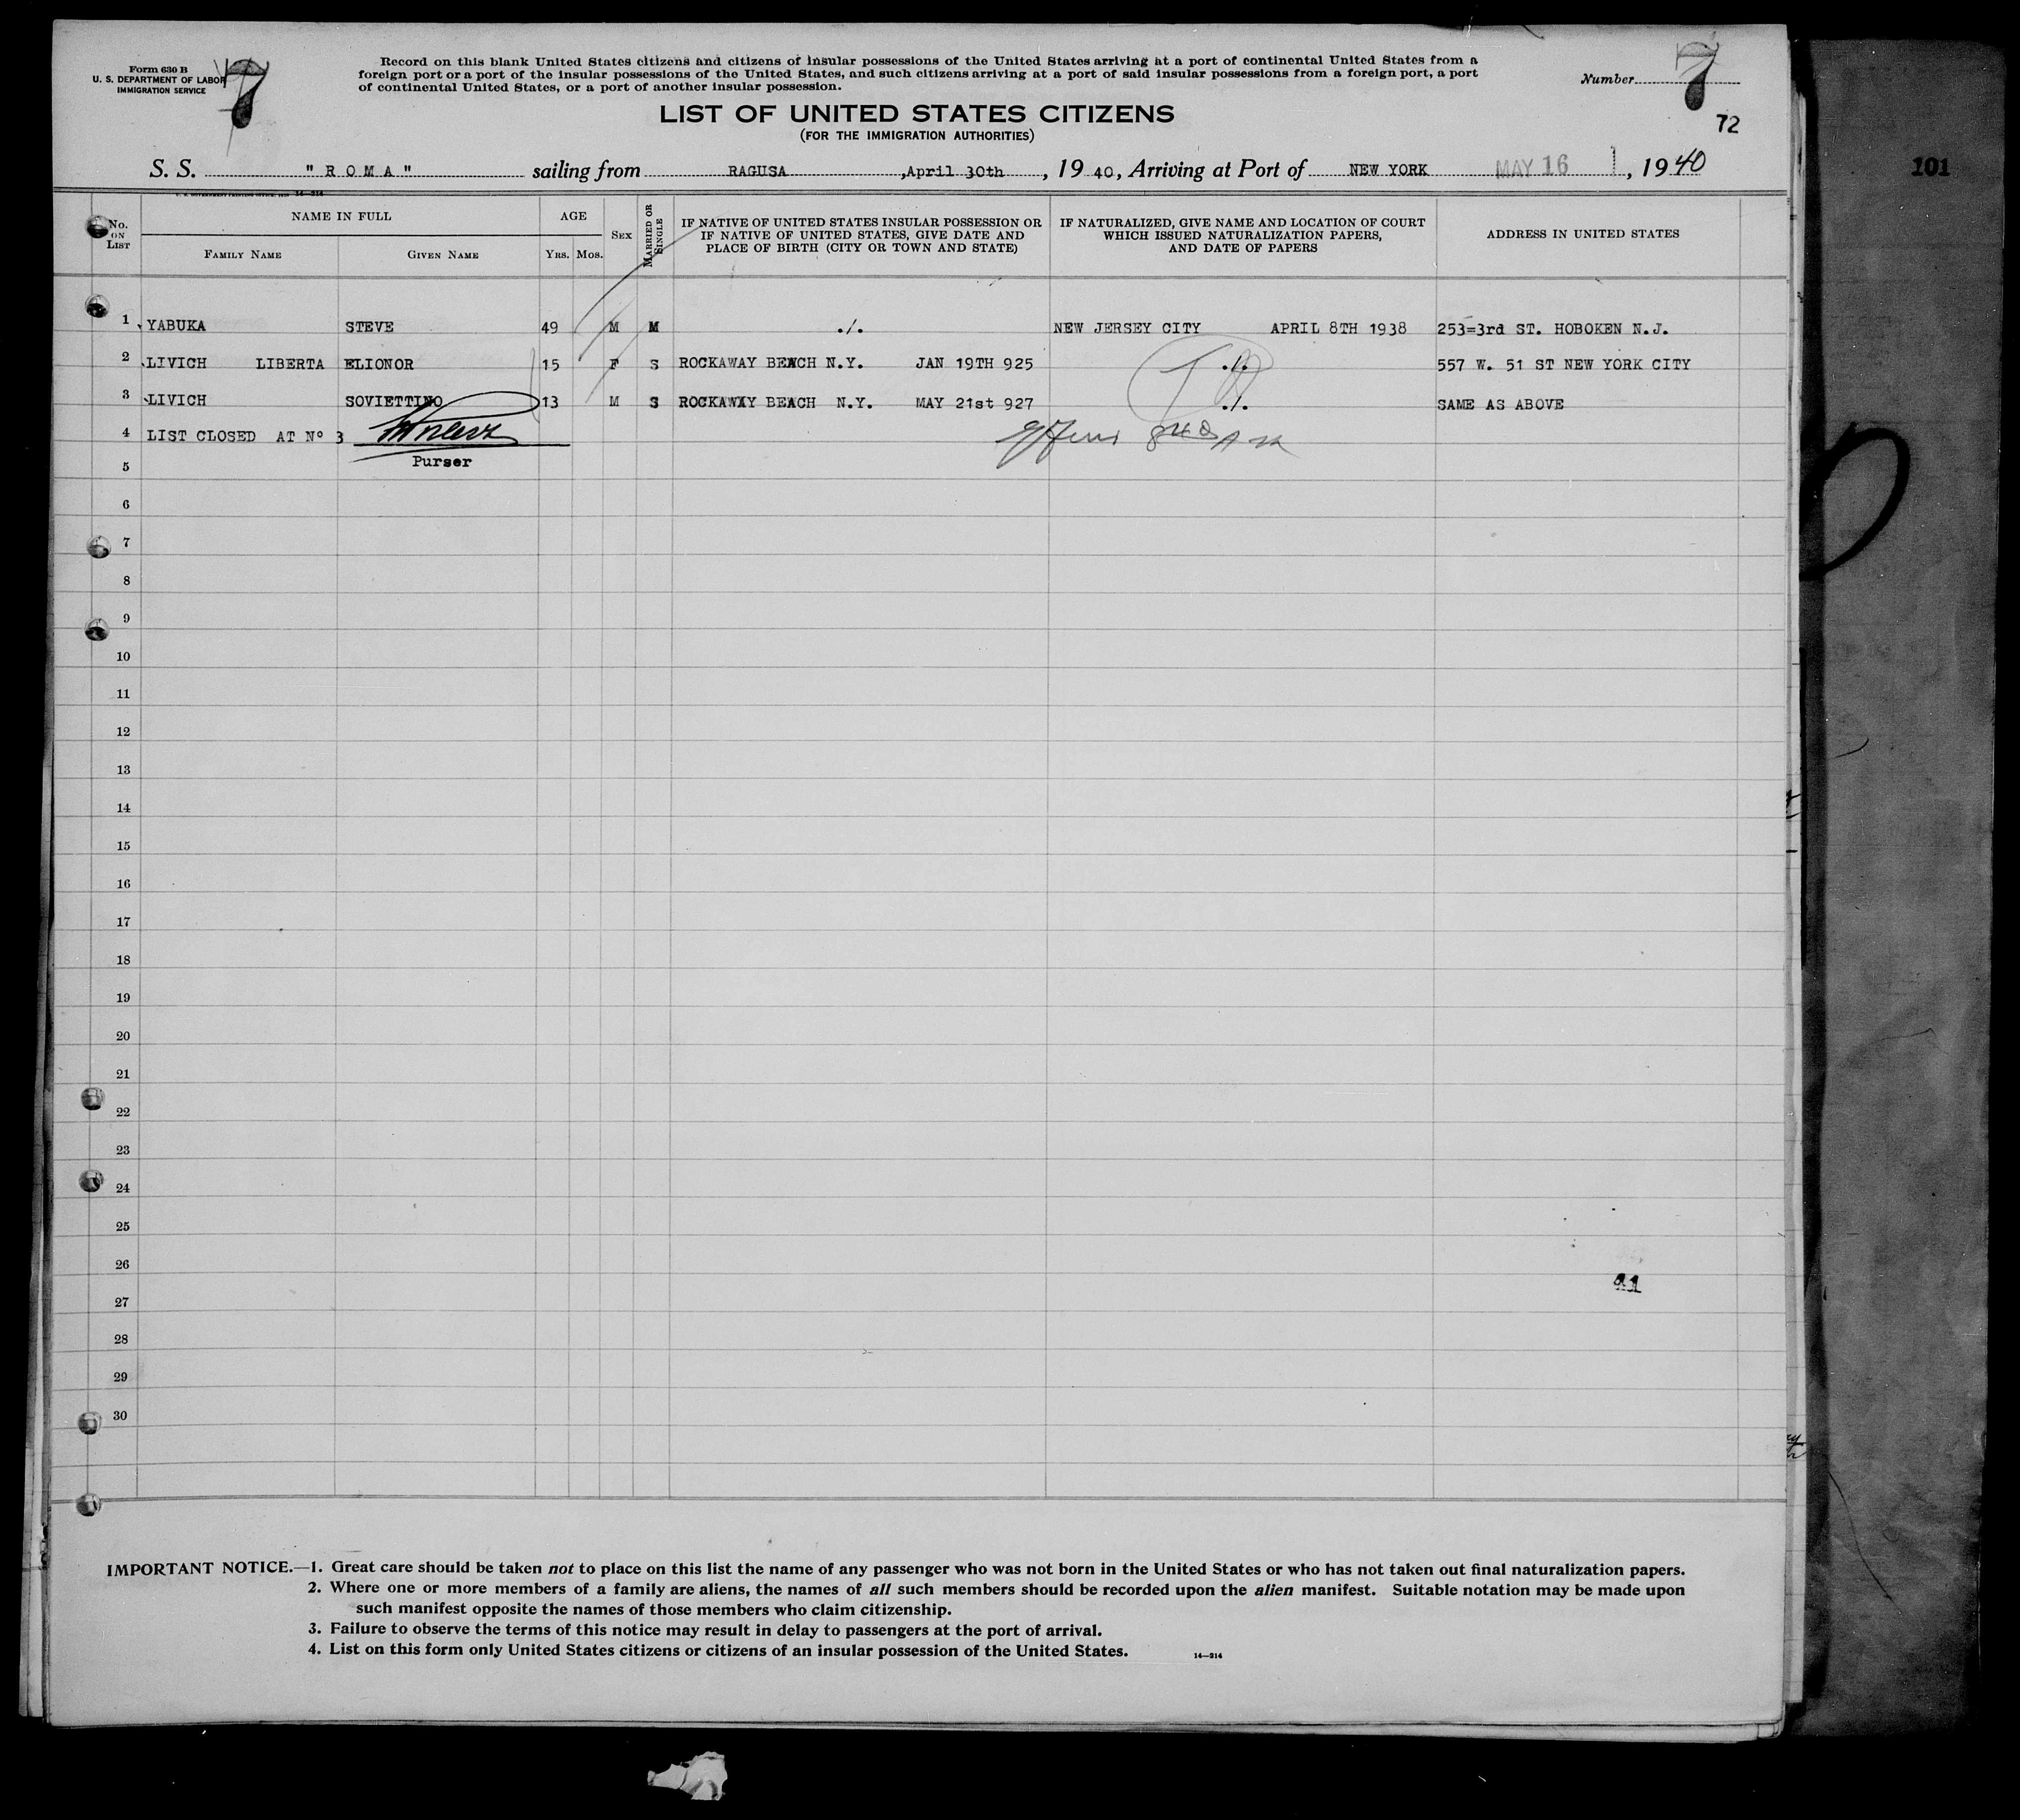 Form 630 B
U. S. DEPARTMENT OF LABOR
IMMIGRATION SERVICE
7
Record on this blank United States citizens and citizens of insular possessions of the United States arriving at a port of continental United States from a
foreign port or a port of the insular possessions of the United States, and such citizens arriving at a port of said insular possessions from a foreign port, a port
of continental United States, or a port of another insular possession.
Number 7
LIST OF UNITED STATES CITIZENS
(FOR THE IMMIGRATION AUTHORITIES)
72
S. S. "ROMA" sailing from RAGUSA ,April 30th , 19 40, Arriving at Port of NEW YORK MAY 16 , 19 40
101
No. ON LIST
NAME IN FULL
FAMILY NAME GIVEN NAME
AGE
YRS. MOS.
SEX
MARRIED OR SINGLE
IF NATIVE OF UNITED STATES INSULAR POSSESSION OR
IF NATIVE OF UNITED STATES, GIVE DATE AND
PLACE OF BIRTH (CITY OR TOWN AND STATE)
IF NATURALIZED, GIVE NAME AND LOCATION OF COURT
WHICH ISSUED NATURALIZATION PAPERS,
AND DATE OF PAPERS
ADDRESS IN UNITED STATES
1 YABUKA STEVE 49 M M ./. NEW JERSEY CITY APRIL 8TH 1938 253=3rd ST. HOBOKEN N.J.
2 LIVICH LIBERTA ELIONOR 15 F S ROCKAWAY BEACH N.Y. JAN 19TH 925 ./. 557 W. 51 ST NEW YORK CITY
3 LIVICH SOVIETTINO 13 M S ROCKAWAY BEACH N.Y. MAY 21st 927 ./. SAME AS ABOVE
4 LIST CLOSED AT Nº 3
Purser
5
6
7
8
9
10
11
12
13
14
15
16
17
18
19
20
21
22
23
24
25
26
27
28
29
30
IMPORTANT NOTICE.—1. Great care should be taken not to place on this list the name of any passenger who was not born in the United States or who has not taken out final naturalization papers.
2. Where one or more members of a family are aliens, the names of all such members should be recorded upon the alien manifest. Suitable notation may be made upon
such manifest opposite the names of those members who claim citizenship.
3. Failure to observe the terms of this notice may result in delay to passengers at the port of arrival.
4. List on this form only United States citizens or citizens of an insular possession of the United States. 14—214